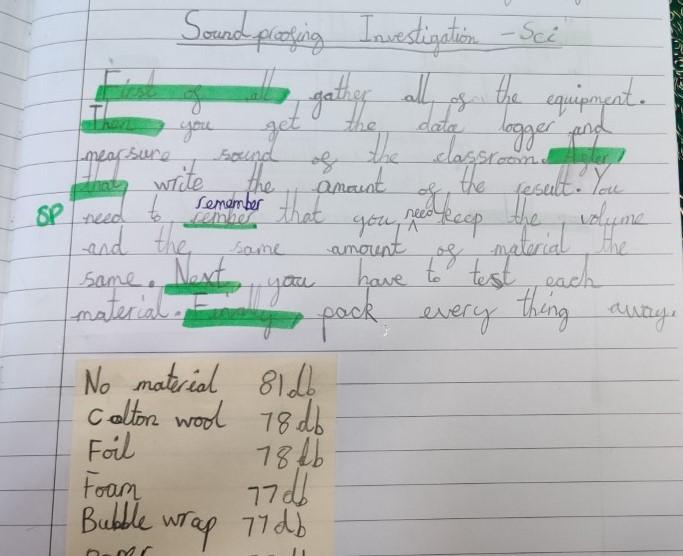 Sound proofing Investigation - Sci
First of all, gather all of the equipment.
Then you get the data logger and
mearsure sound of the classroom. After
that write the amount of the result. You
SP need to rember remember that you need keep the volume
and the same amount of material the
same. Next you have to test each
material. Finally pack every thing away.
No material 81db
Cotton wool 78db
Foil 78db
Foam 77db
Bubble wrap 77db